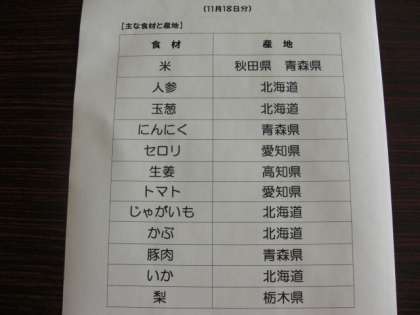 (11月18日分)
[主な食材と産地]
食 材 産 地
米 秋田県 青森県
人参 北海道
玉葱 北海道
にんにく 青森県
セロリ 愛知県
生姜 高知県
トマト 愛知県
じゃがいも 北海道
かぶ 北海道
豚肉 青森県
いか 北海道
梨 栃木県